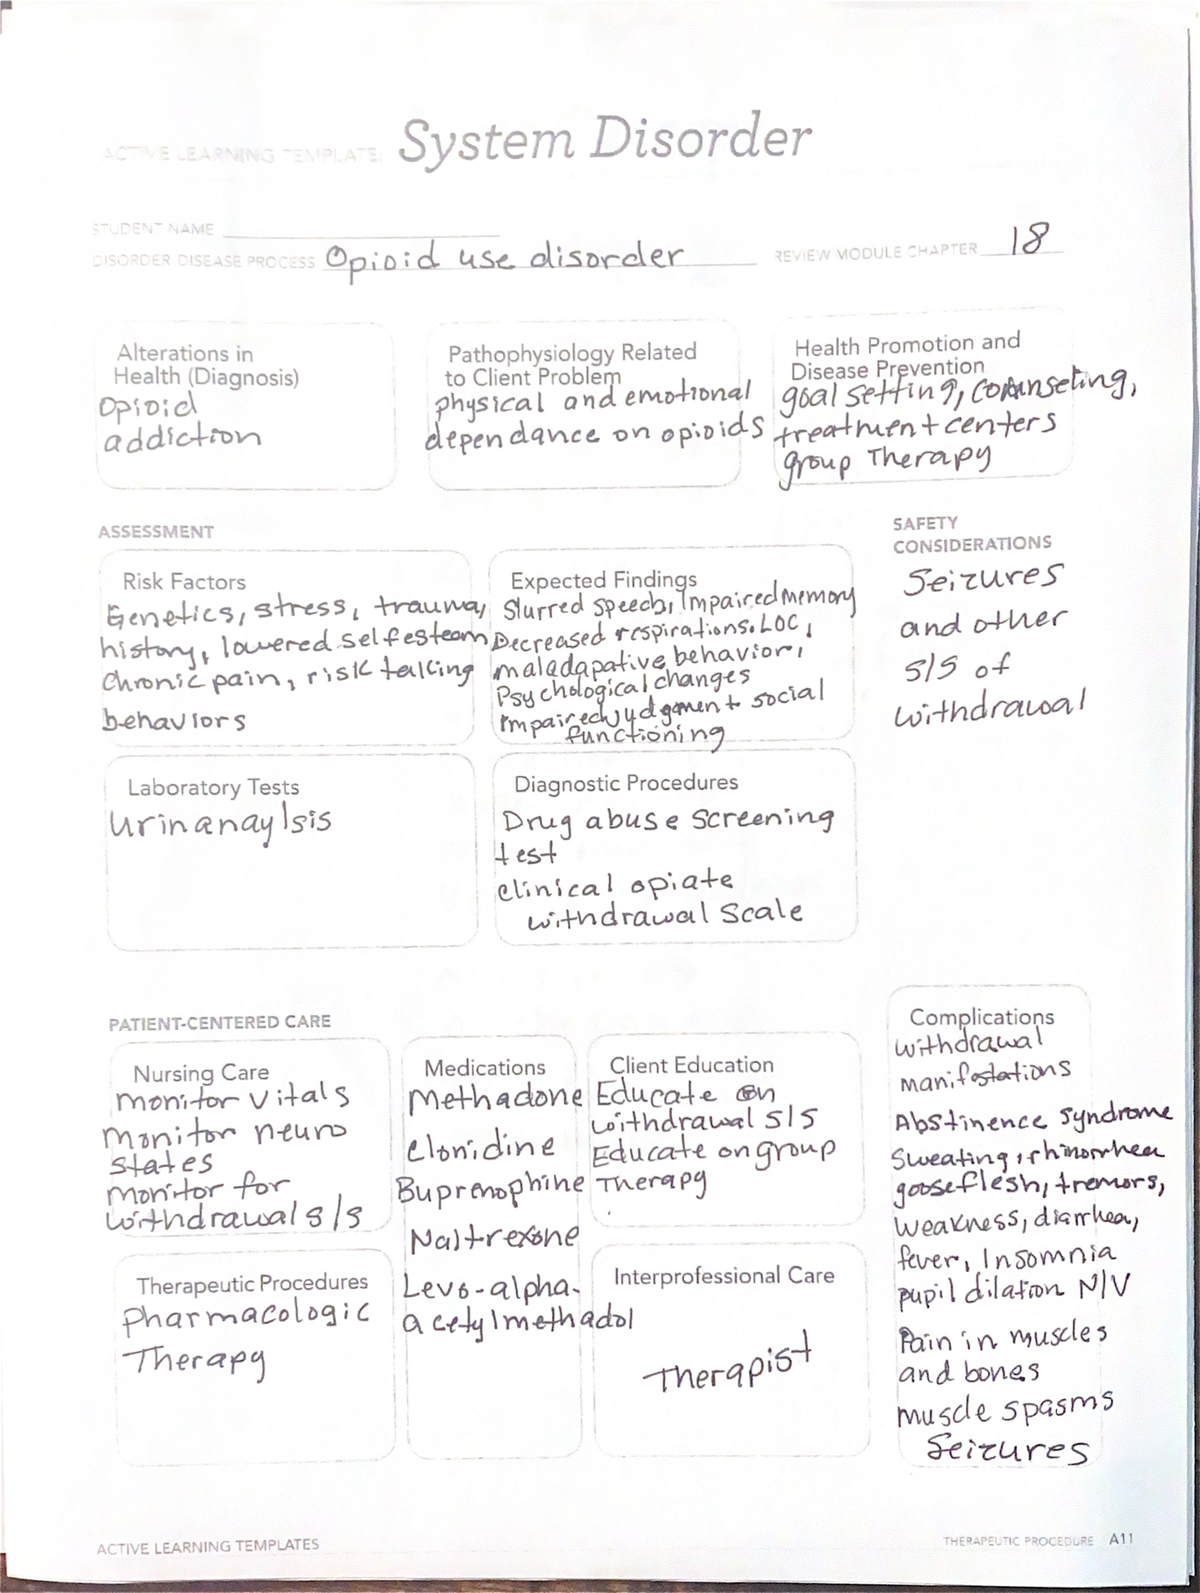 ACTIVE LEARNING TEMPLATE: System Disorder
STUDENT NAME
DISORDER/DISEASE PROCESS Opioid use disorder
REVIEW MODULE CHAPTER 18
Alterations in
Health (Diagnosis)
Opioid
addiction
Pathophysiology Related
to Client Problem
physical and emotional
dependance on opioids
Health Promotion and
Disease Prevention
goal setting, counseling,
treatment centers
group Therapy
ASSESSMENT
Risk Factors
Genetics, stress, trauma,
history, lowered selfesteem
Chronic pain, risk talking
behaviors
Expected Findings
Slurred speech, Impaired memory
Decreased respirations. LOC,
maladapative behavior,
Psychological changes
Impaired judgment + social
functioning
SAFETY
CONSIDERATIONS
Seizures
and other
S/S of
withdrawal
Laboratory Tests
Urinanaylsis
Diagnostic Procedures
Drug abuse screening
test
Clinical opiate
withdrawal Scale
PATIENT-CENTERED CARE
Nursing Care
monitor vitals
monitor neuro
states
monitor for
withdrawal s/s
Medications
Methadone
Clonidine
Buprenophine
Naltrexone
Levo-alpha-
acetylmethadol
Client Education
Educate on
withdrawal S/S
Educate on group
Therapy
Therapeutic Procedures
Pharmacologic
Therapy
Interprofessional Care
Therapist
Complications
withdrawal
manifestations
Abstinence syndrome
Sweating, rhinorrhea
gooseflesh, tremors,
weakness, diarrhea,
fever, Insomnia
pupil dilation N/V
Pain in muscles
and bones
muscle spasms
Seizures
ACTIVE LEARNING TEMPLATES
THERAPEUTIC PROCEDURE A11